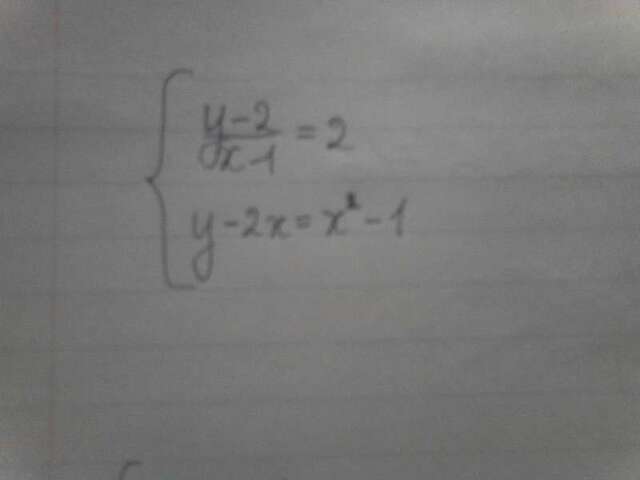 y-2/x-1 = 2
y-2x = x²-1